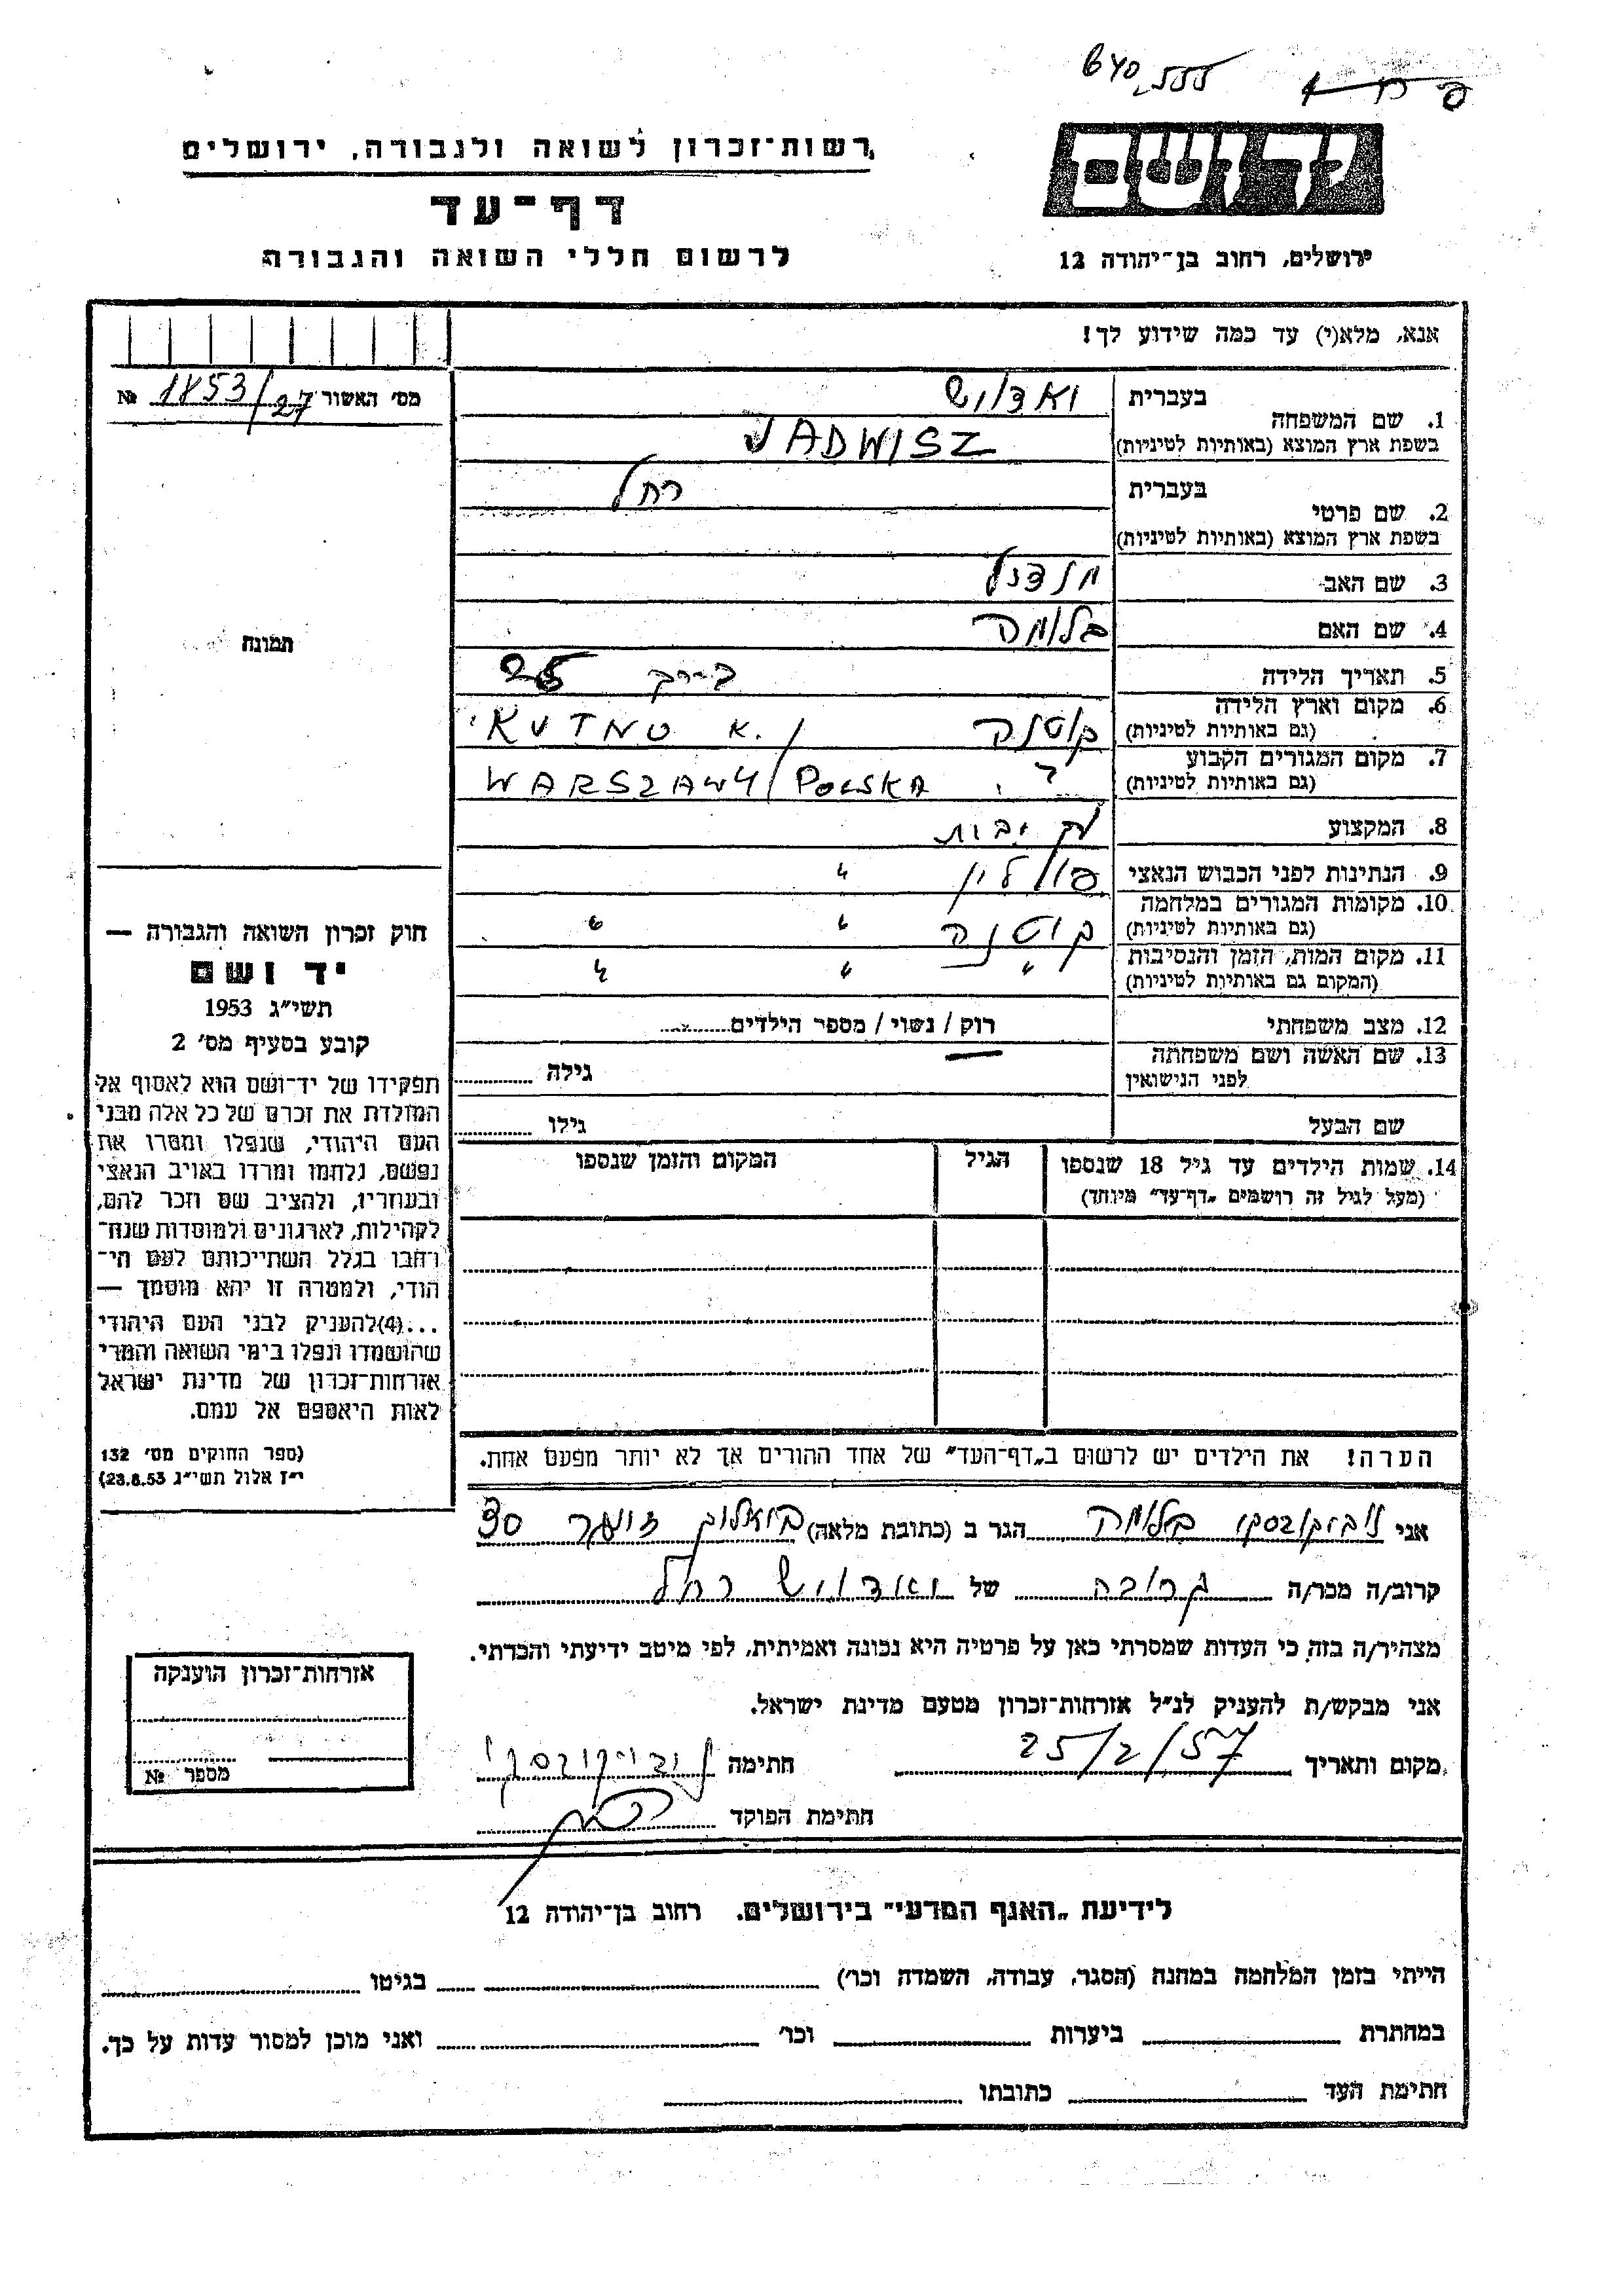 640,555
רשות־זכרון לשואה ולגבורה, ירושלים
יד ושם
דף־עד
לרשום חללי השואה והגבורה
ירושלים, רחוב בן־יהודה 12
אנא, מלא(י) עד כמה שידוע לך!
מס׳ האשור № 1853/27
בעברית ואדויש
1. שם המשפחה
בשפת ארץ המוצא (באותיות לטיניות) VADWISZ
בעברית רחל
2. שם פרטי
בשפת ארץ המוצא (באותיות לטיניות)
3. שם האב מנדל
4. שם האם בלומה
5. תאריך הלידה בערך 25
6. מקום וארץ הלידה קוטנה / KUTNO K.
(גם באותיות לטיניות)
7. מקום המגורים הקבוע WARSZAWY / POLSKA
(גם באותיות לטיניות)
8. המקצוע
9. הנתינות לפני הכבוש הנאצי פולין "
10. מקומות המגורים במלחמה קוטנה " "
(גם באותיות לטיניות)
11. מקום המות, הזמן והנסיבות " " "
(המקום גם באותיות לטיניות)
12. מצב משפחתי רוק / נשוי / מספר הילדים
13. שם האשה ושם משפחתה גילה
לפני הנישואין
שם הבעל גילו
14. שמות הילדים עד גיל 18 שנספו הגיל המקום והזמן שנספו
(מעל לגיל זה רושמים „דף־עד״ מיוחד)
הערה! את הילדים יש לרשום ב„דף־העד״ של אחד ההורים אך לא יותר מפעם אחת.
תמונה
חוק זכרון השואה והגבורה —
יד ושם
תשי״ג 1953
קובע בסעיף מס׳ 2
תפקידו של יד־ושם הוא לאסוף אל
המולדת את זכרם של כל אלה מבני
העם היהודי, שנפלו ומסרו את
נפשם, נלחמו ומרדו באויב הנאצי
ובעוזריו, ולהציב שם וזכר להם,
לקהילות, לארגונים ולמוסדות שנח־
רחבו בגלל השתייכותם לעם הי־
הודי, ולמטרה זו יהא מוסמך —
...(4)להעניק לבני העם היהודי
שהושמדו ונפלו בימי השואה והמרי
אזרחות־זכרון של מדינת ישראל
לאות היאספם אל עמם.
(ספר החוקים מס׳ 132
י״ז אלול תשי״ג 28.8.53)
אני בלומה הגר ב (כתובת מלאה) 30
קרוב/ה מכר/ה קרובה של ואדויש רחל
מצהיר/ה בזה כי העדות שמסרתי כאן על פרטיה היא נכונה ואמיתית, לפי מיטב ידיעתי והכרתי.
אני מבקש/ת להעניק לנ״ל אזרחות־זכרון מטעם מדינת ישראל.
מקום ותאריך 25/2/57 חתימה
חתימת הפוקד
אזרחות־זכרון הוענקה
מספר №
לידיעת „האגף המדעי״ בירושלים, רחוב בן־יהודה 12
הייתי בזמן המלחמה במחנה (הסגר, עבודה, השמדה וכו׳) בגיטו
במחתרת ביערות וכו׳ ואני מוכן למסור עדות על כך.
חתימת העד כתובתו